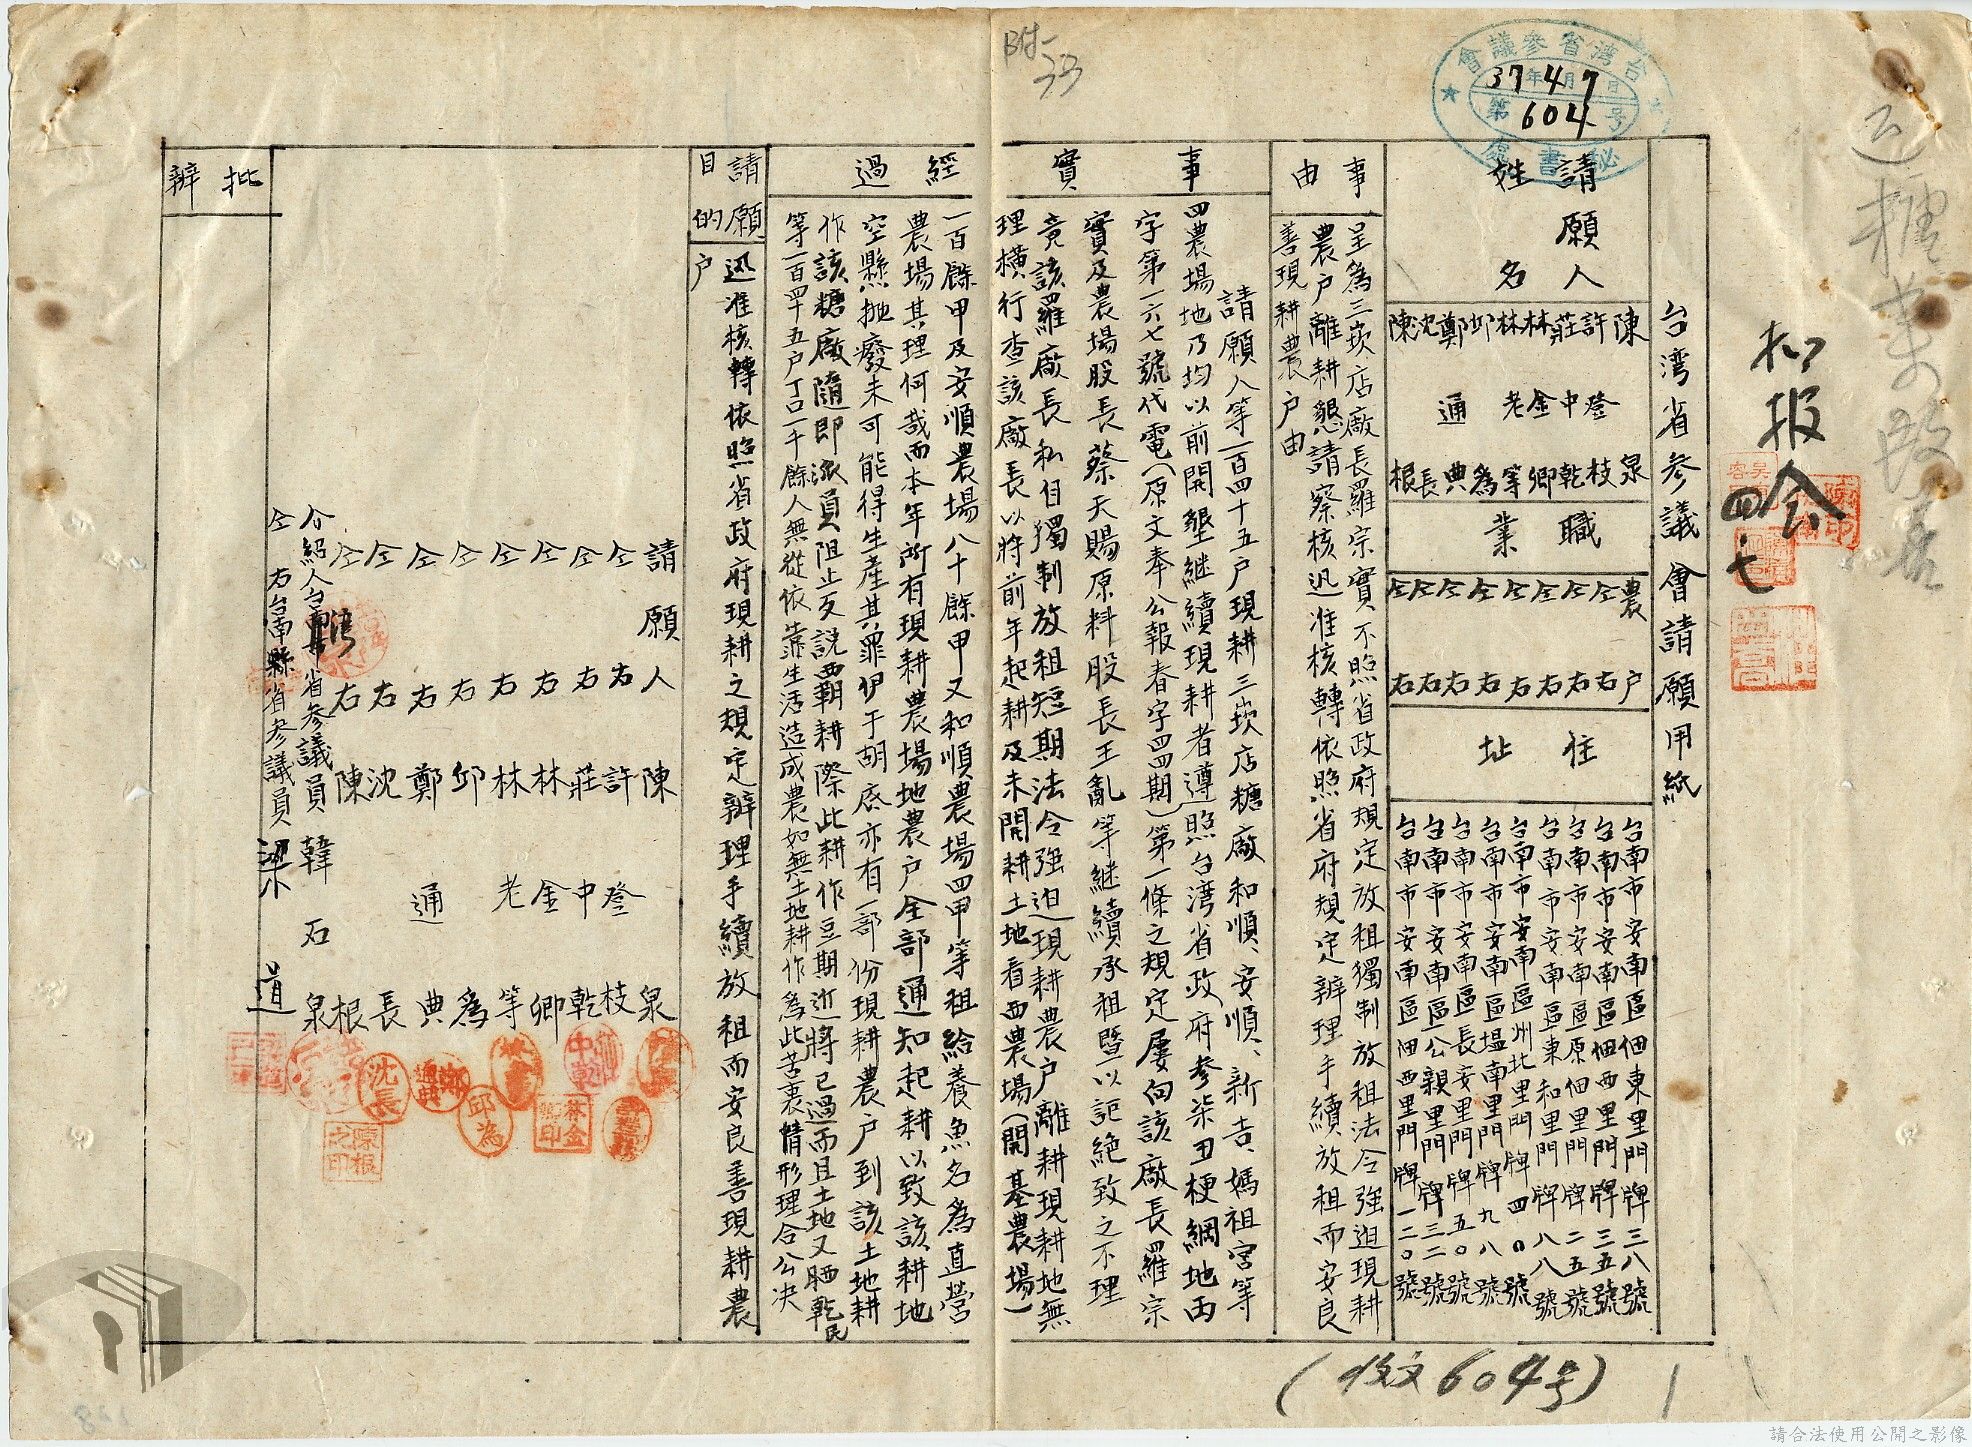 附一
台灣省參議會
37年4月7日
第604号
秘書處
扣报会
四.七
台湾省参議會請願用紙
請願人姓名
陳登泉
許中枝
莊金乾
林老卿
林等
邱為
鄭通典
沈長
陳根
職業
農户
仝右
仝右
仝右
仝右
仝右
仝右
仝右
仝右
住址
台南市安南區佃東里門牌三八號
台南市安南區佃西里門牌三五號
台南市安南區原佃里門牌二五號
台南市安南區東和里門牌八八號
台南市安南區州北里門牌四〇號
台南市安南區塭南里門牌九八號
台南市安南區長安里門牌五〇號
台南市安南區公親里門牌三二號
台南市安南區佃西里門牌一二〇號
事由
呈為三崁店廠長羅宗實不照省政府規定放租獨制放租法令強迫現耕
農户離耕懇請察核迅准核轉依照省府規定辦理手續放租而安良
善現耕農户由
事實
請願人等一百四十五户現耕三崁店糖廠和順、安順、新吉、媽祖宮等
四農場地乃均以前開墾継續現耕者遵照台湾省政府參柒丑梗綱地丙
字第一六七號代電(原文奉公報春字四四期)第一條之規定屢向該廠長羅宗
實及農場股長蔡天賜原料股長王亂等継續承租暨以詎絶致之不理
竟該羅廠長私自獨制放租短期法令強迫現耕農户離耕現耕地無
理橫行查該廠長以將前年起耕及未開耕土地看西農場(開基農場)
經過
一百餘甲及安順農場八十餘甲又和順農場四甲等租給養魚名為直營
農場其理何哉而本年所有現耕農場地農户全部通知起耕以致該耕地
空懸抛癈未可能得生產其罪伊于胡底亦有一部份現耕農户到該土地耕
作該糖廠隨即派員阻止反説覇耕際此耕作豆期近將已過而且土地又晒乾民
等一百四十五户丁口一千餘人無從依靠生活造成農如無土地耕作為此苦衷情形理合公决
請願目的
迅准核轉依照省政府現耕之規定辦理手續放租而安良善現耕農
户
請願人陳登泉
仝右許中枝
仝右莊金乾
仝右林老卿
仝右林等
仝右邱為
仝右鄭通典
仝右沈長
仝右陳根
介紹人台灣省參議員韓石泉
仝右台南縣省參議員梁道
批辦
沈長
邱為
林金
陳根之印
(收文604号)
請合法使用公開之影像